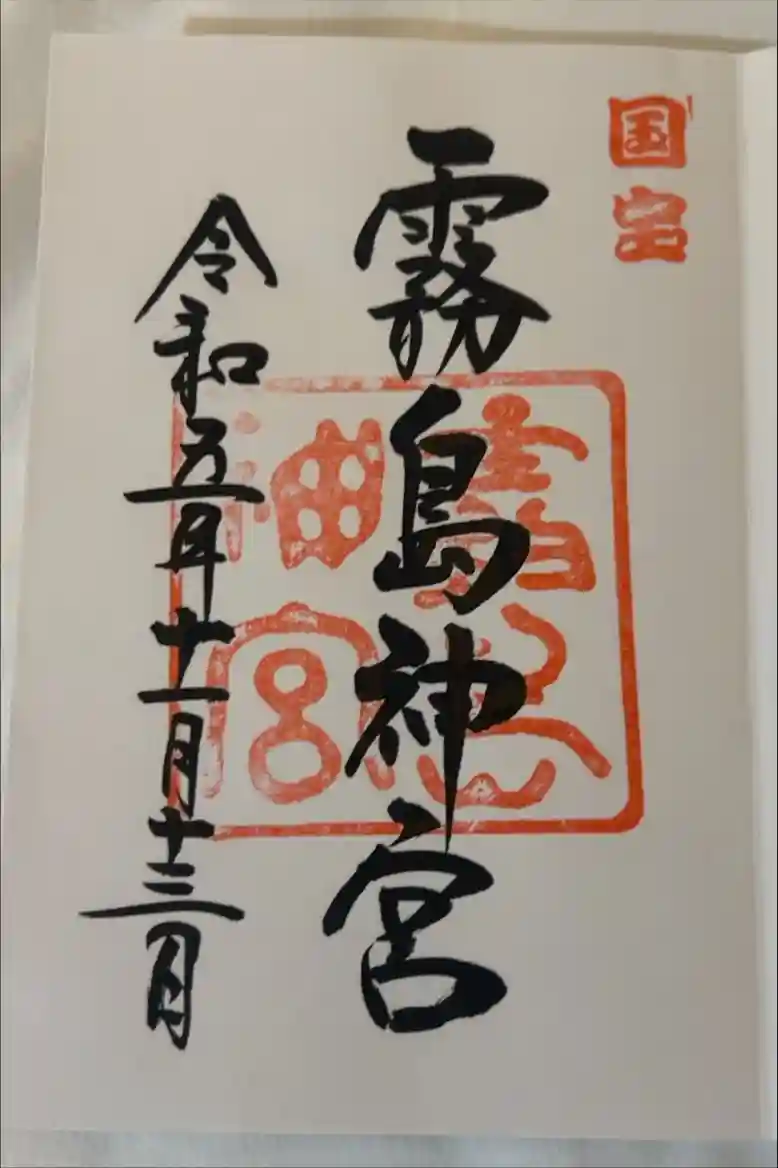 国宝
霧島神宮
令和五年十一月十三日